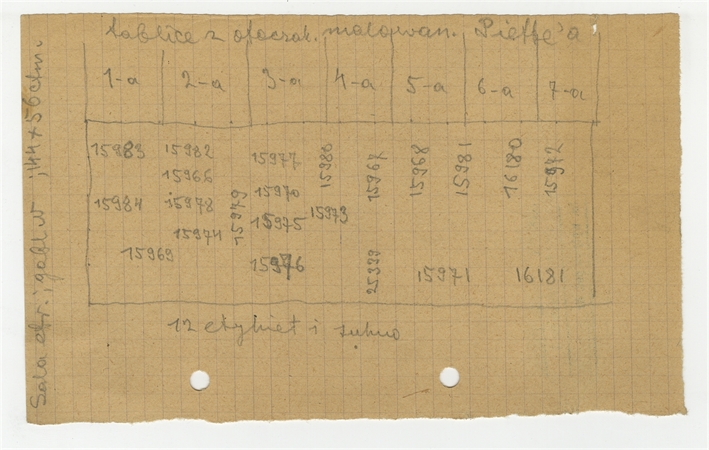 tablice z otoczak. malowan. Pietте'a
1-a 2-a 3-a 4-a 5-a 6-a 7-a
15983 15982 15977 15980 15967 15968 15981 16180 15972
15966
15984 15978 15979 15970 15973
15974 15975
15969 15976 25999 15971 16181
12 etykiet i sukno
Sala afr.; gabl. IV ; 144 x 56 ctm.